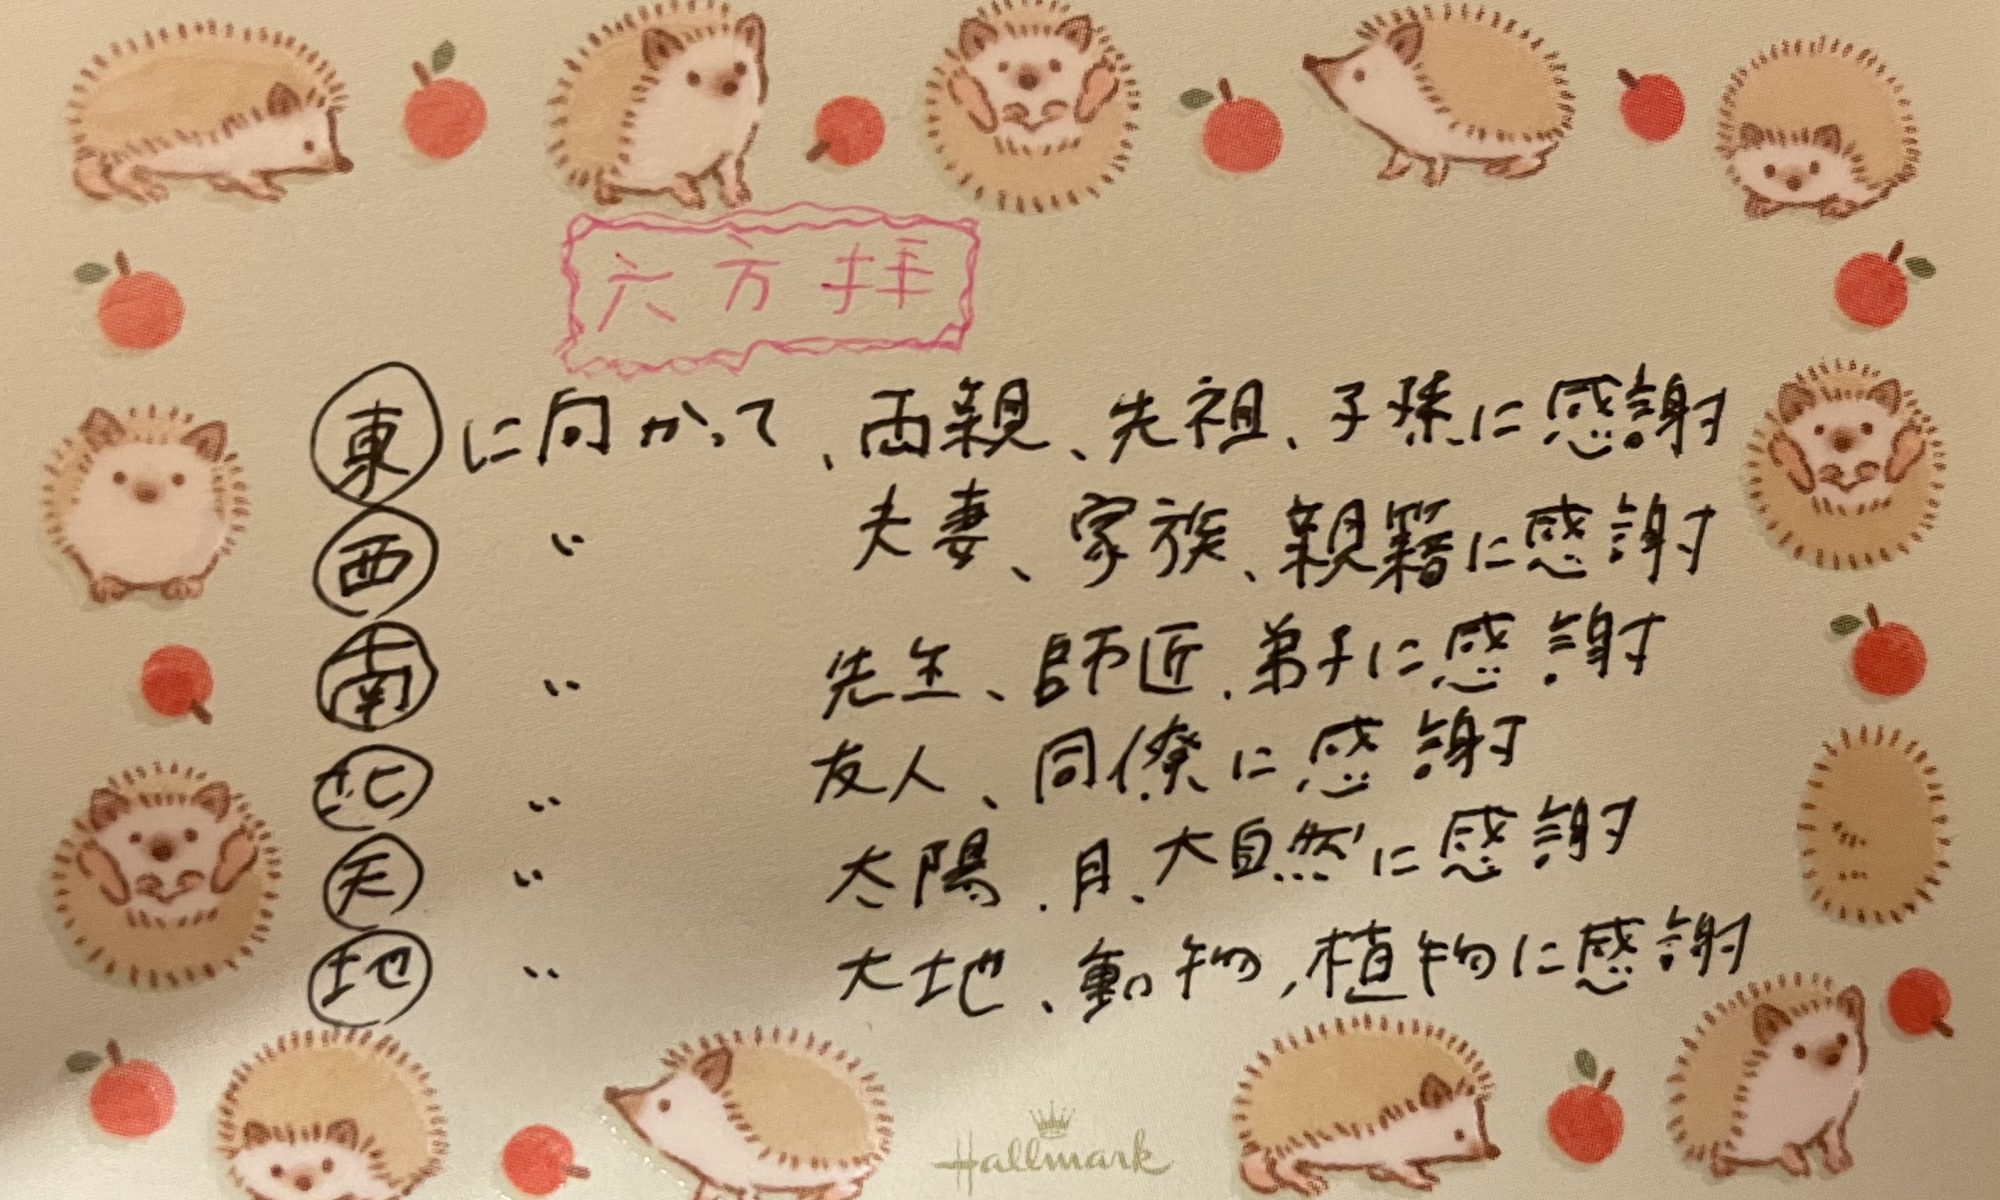 六方拝
東に向かって、両親、先祖、子孫に感謝
西 〃 夫妻、家族、親籍に感謝
南 〃 先生、師匠、弟子に感謝
北 〃 友人、同僚に感謝
天 〃 太陽、月、大自然に感謝
地 〃 大地、動物、植物に感謝
Hallmark